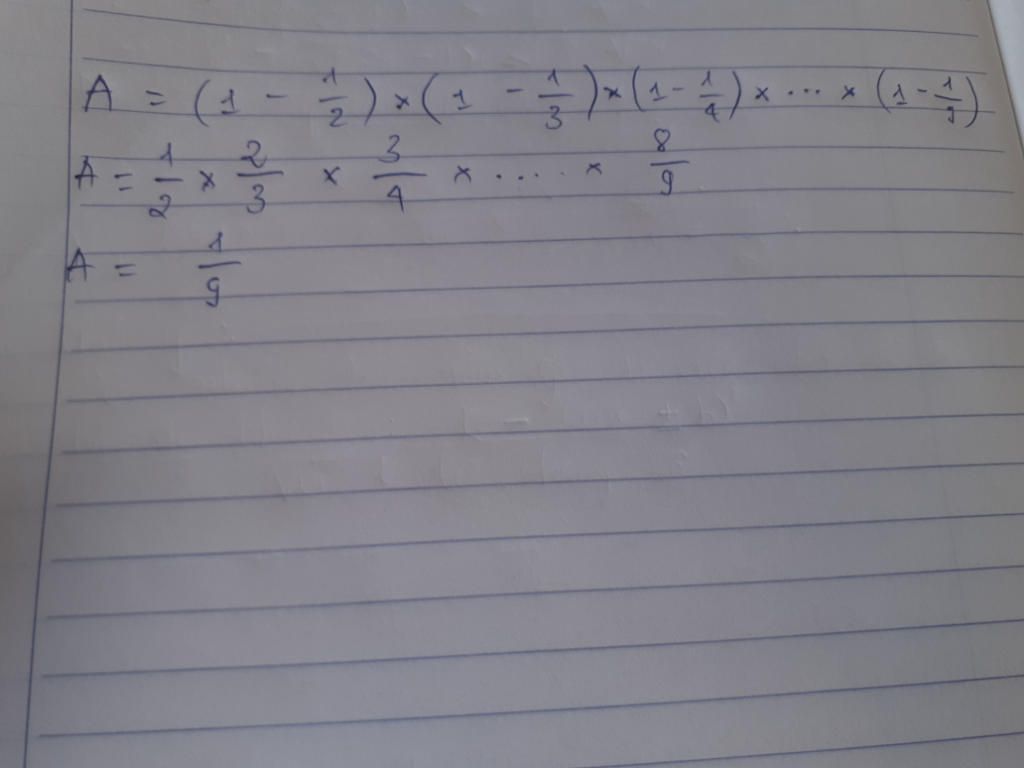 A = (1 - 1/2) × (1 - 1/3) × (1 - 1/4) × ... × (1 - 1/9)
A = 1/2 × 2/3 × 3/4 × .... × 8/9
A = 1/9